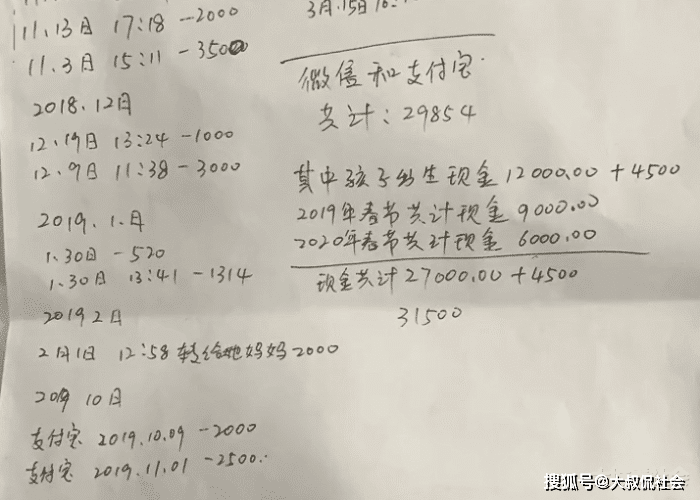 11.13日 17:18 -2000
11.3日 15:11 -3500
2018.12日
12.19日 13:24 -1000
12.9日 11:38 -3000
2019.1.日
1.30日 -520
1.30日 13:41 -1314
2019 2日
2月1日 12:58 转给她妈妈2000
2019 10日
支付宝 2019.10.09 -2000
支付宝 2019.11.01 -2500.
3月.15日
微信和支付宝
共计：29854
其中孩子出生现金12000.00+4500
2019年春节共计现金 9000.00
2020年春节共计现金 6000.00
现金共计27000.00+4500
31500
搜狐号@大叔侃社会